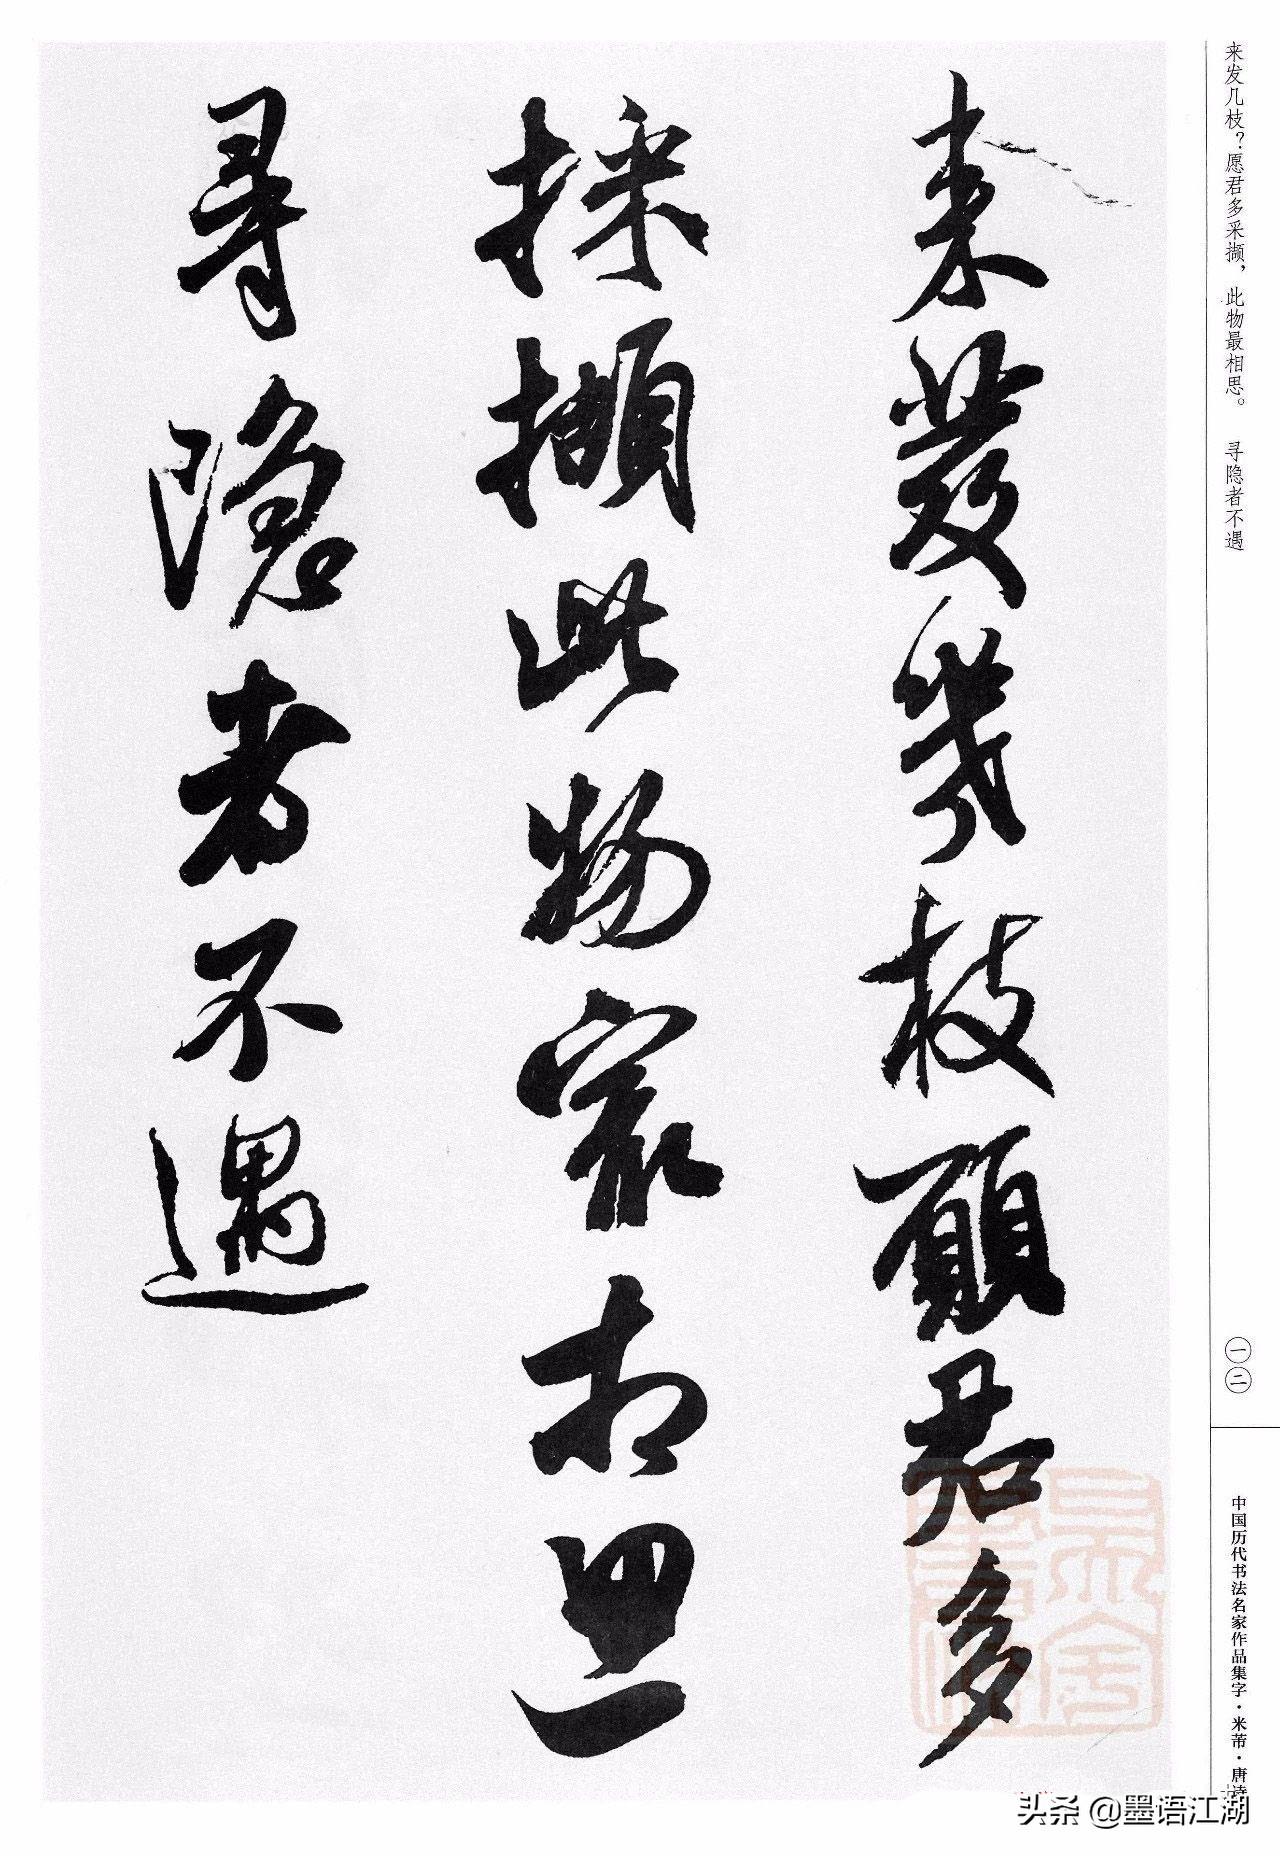 来发几枝？愿君多采撷，此物最相思。　寻隐者不遇
一二
中国历代书法名家作品集字·米芾·唐诗
来發幾枝願君多
採擷此物最相思
尋隱者不遇
头条 @墨语江湖